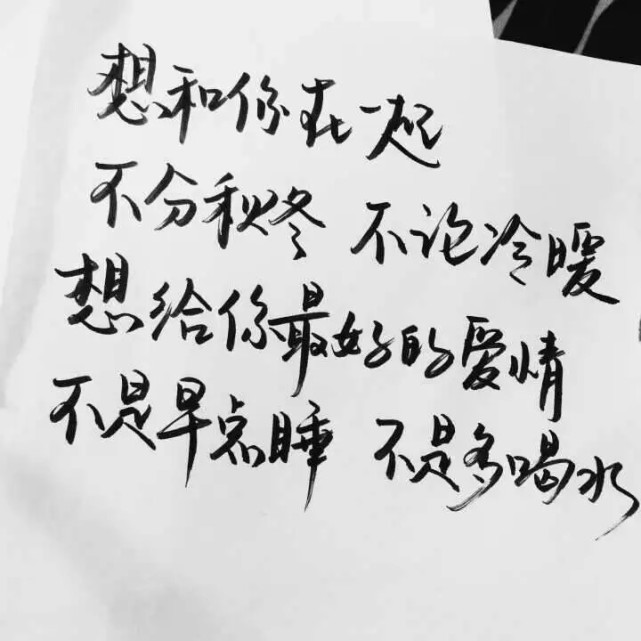 想和你在一起
不分秋冬 不论冷暖
想给你最好的爱情
不是早点睡 不是多喝水